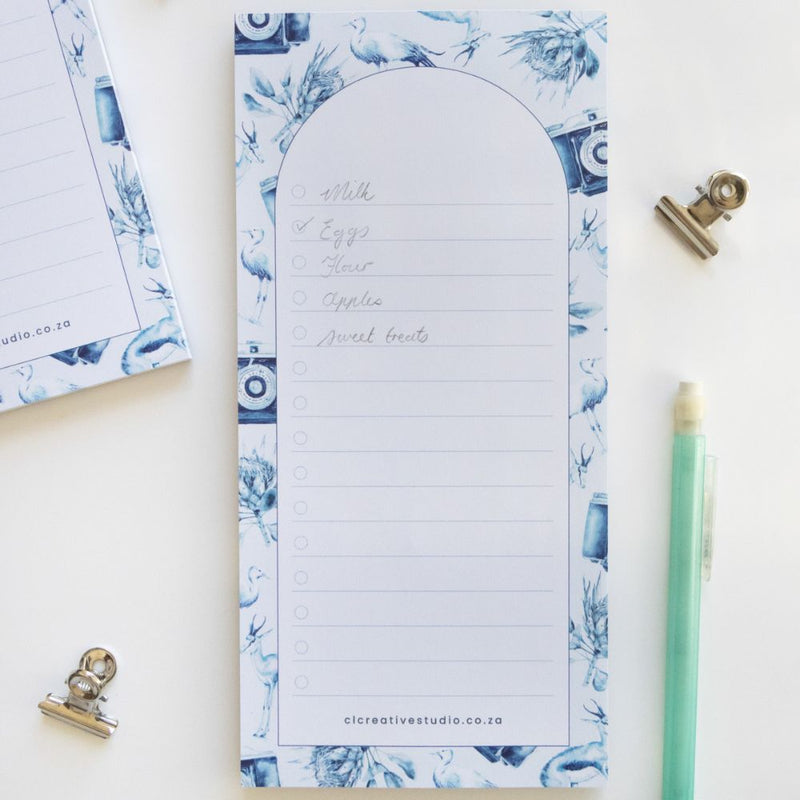 Milk
Eggs
Flour
Apples
sweet treats
clcreativestudio.co.za
udio.co.za